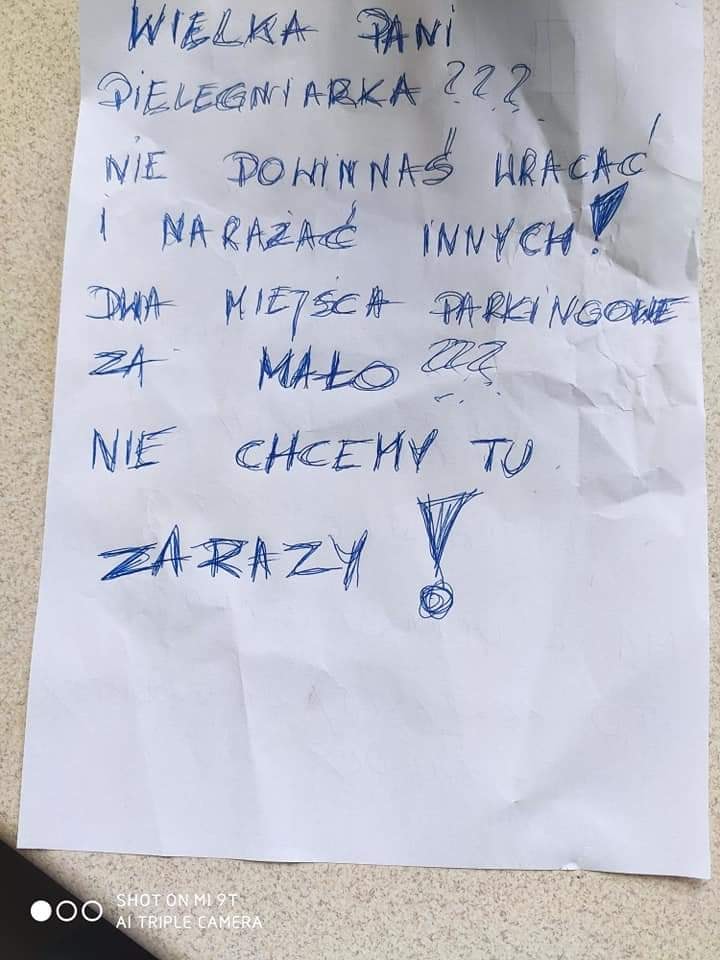 WIELKA PANI
PIELEGNIARKA ???
NIE POWINNAŚ WRACAĆ
I NARAŻAĆ INNYCH!
DWA MIEJSCA PARKINGOWE
ZA MAŁO ???
NIE CHCEMY TU
ZARAZY !
SHOT ON MI 9T
AI TRIPLE CAMERA